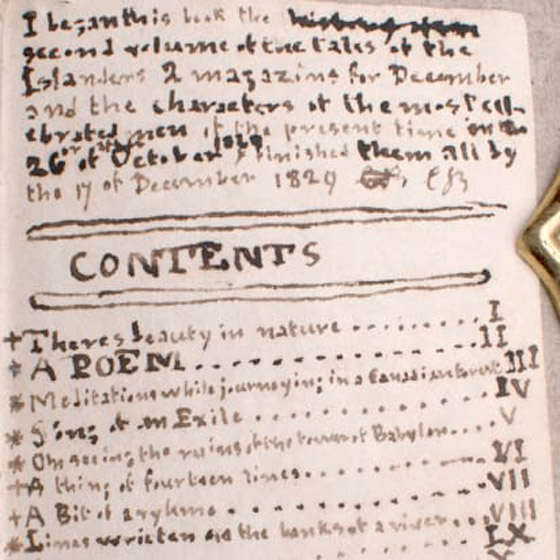 I began this book the
second volume of the tales of the
Islanders 2 magazins for December
and the characters of the most cel-
ebrated men of the present time on the
26 of October 1829 finished them all by
the 17 of December 1829 CB
CONTENTS
+Theres beauty in nature ........ I
* A POEM.................. II
* Meditations while journeying in a Canadian forest III
* Song of an Exile ........... IV
* On seeing the ruins of the tower of Babylon.... V
+A thing of fourteen lines.......... VI
+A Bit of a rhyme ............ VII
*Lines written on the banks of a river... VIII
IX